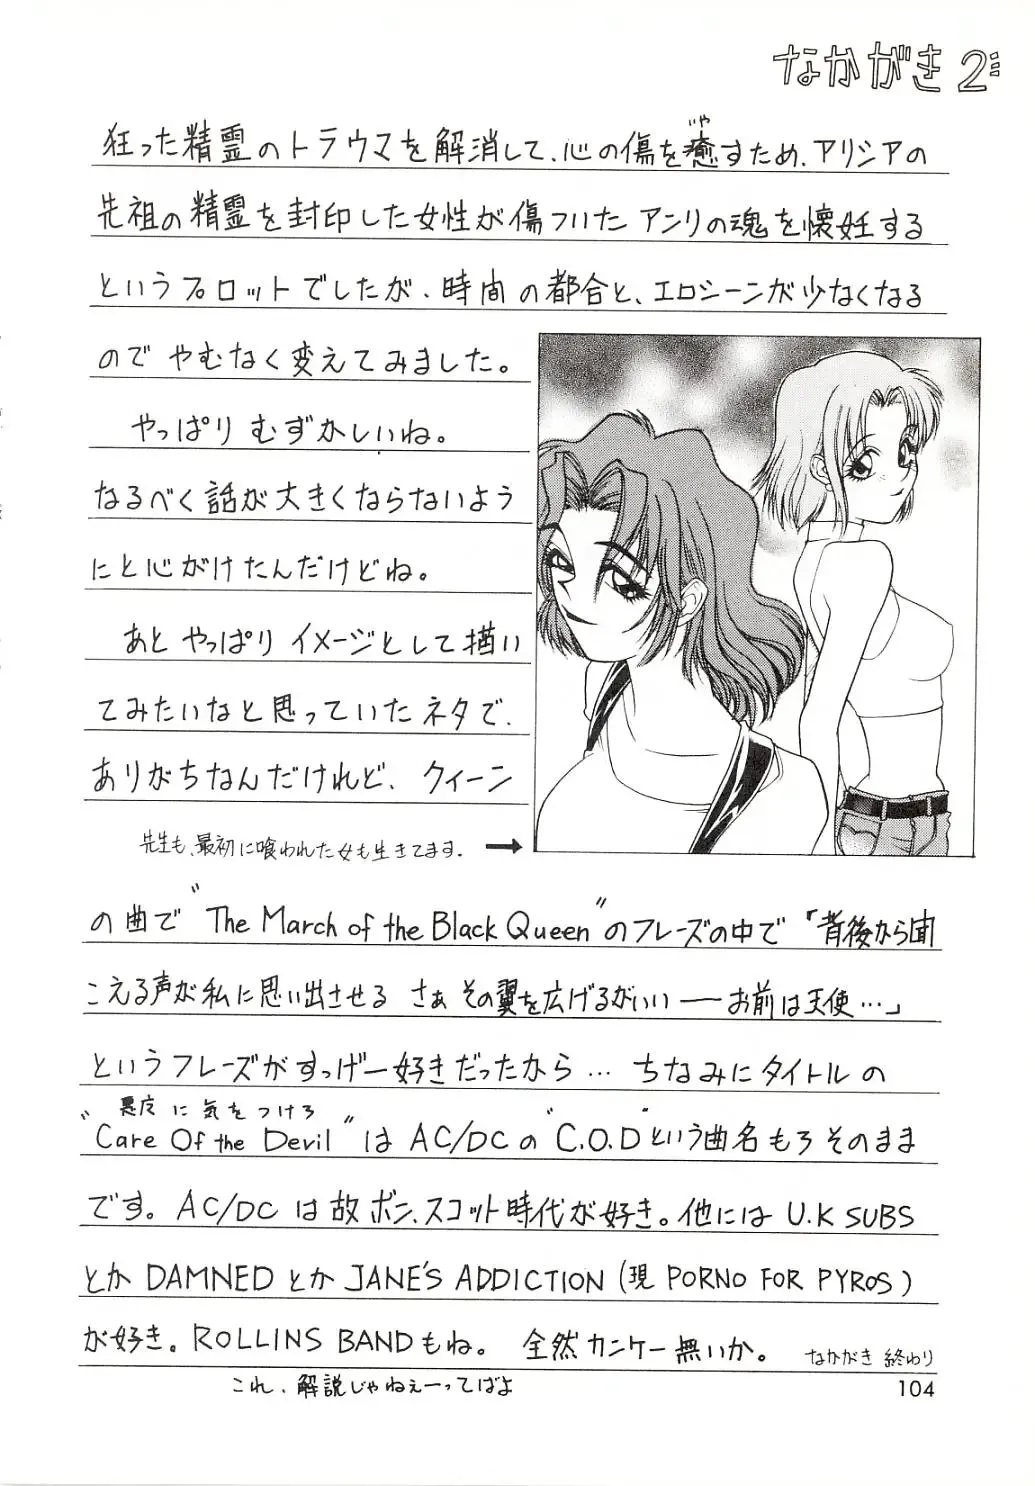 なかがき2
狂った精霊のトラウマを解消して、心の傷を癒すため、アリシアの
いや
先祖の精霊を封印した女性が傷ついたアンリの魂を懐妊する
というプロットでしたが、時間の都合と、エロシーンが少なくなる
のでやむなく変えてみました。
やっぱりむずかしいね。
なるべく話が大きくならないよう
にと心がけたんだけどね。
あとやっぱりイメージとして描い
てみたいなと思っていたネタで、
ありがちなんだけれど、クィーン
先生も、最初に喰われた女も生きてます。→
の曲で"The March of the Black Queen"のフレーズの中で「背後から聞
こえる声が私に思い出させる さぁその翼を広げるがいい――お前は天使…」
というフレーズがすっげー好きだったから… ちなみにタイトルの
悪魔に気をつけろ
"Care Of the Devil"は AC/DCの"C.O.D"という曲名もろそのまま
です。AC/DCは故ボン、スコット時代が好き。他には U.K SUBS
とか DAMNED とか JANE'S ADDICTION (現 PORNO FOR PYROS)
が好き。ROLLINS BANDもね。 全然カンケー無いか。 なかがき 終わり
これ、解説じゃねぇーってばよ
104